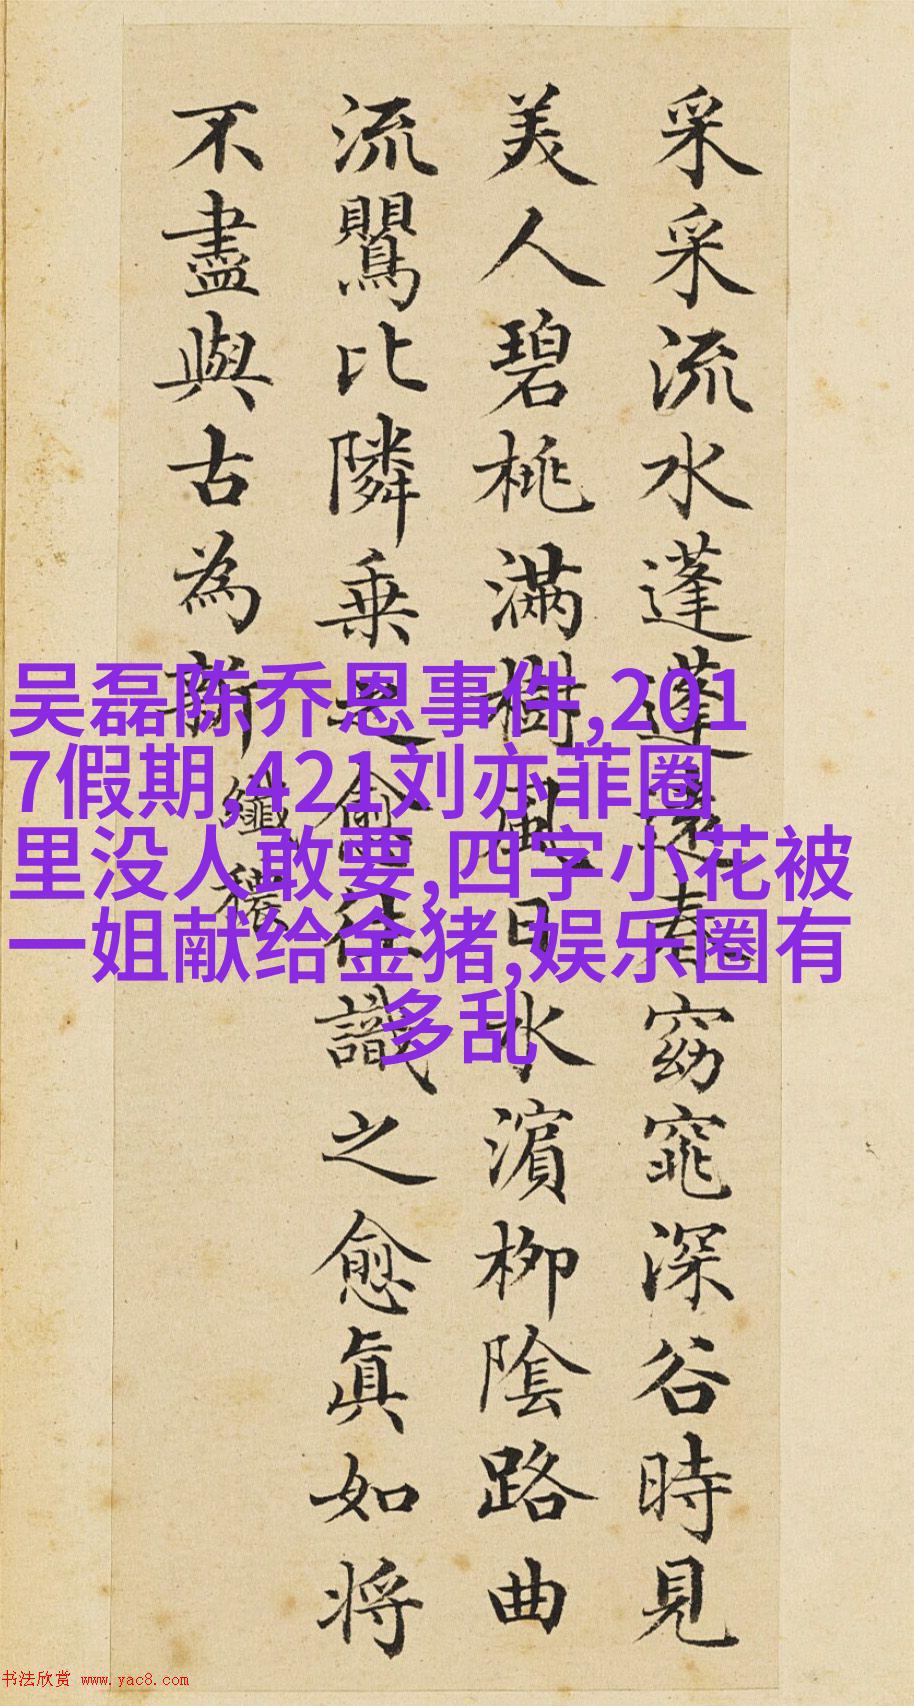 采采流水蓬蓬遠春窈窕深谷時見
美人碧桃滿樹風日水濵栁隂路曲
流鸎比隣乗之愈往識之愈眞如将
不盡與古為新 纖穠
吴磊陈乔恩事件,201
7假期,421刘亦菲圈
里没人敢要,四字小花被
一姐献给金猪,娱乐圈有
多乱
书法欣赏 www.yac8.com